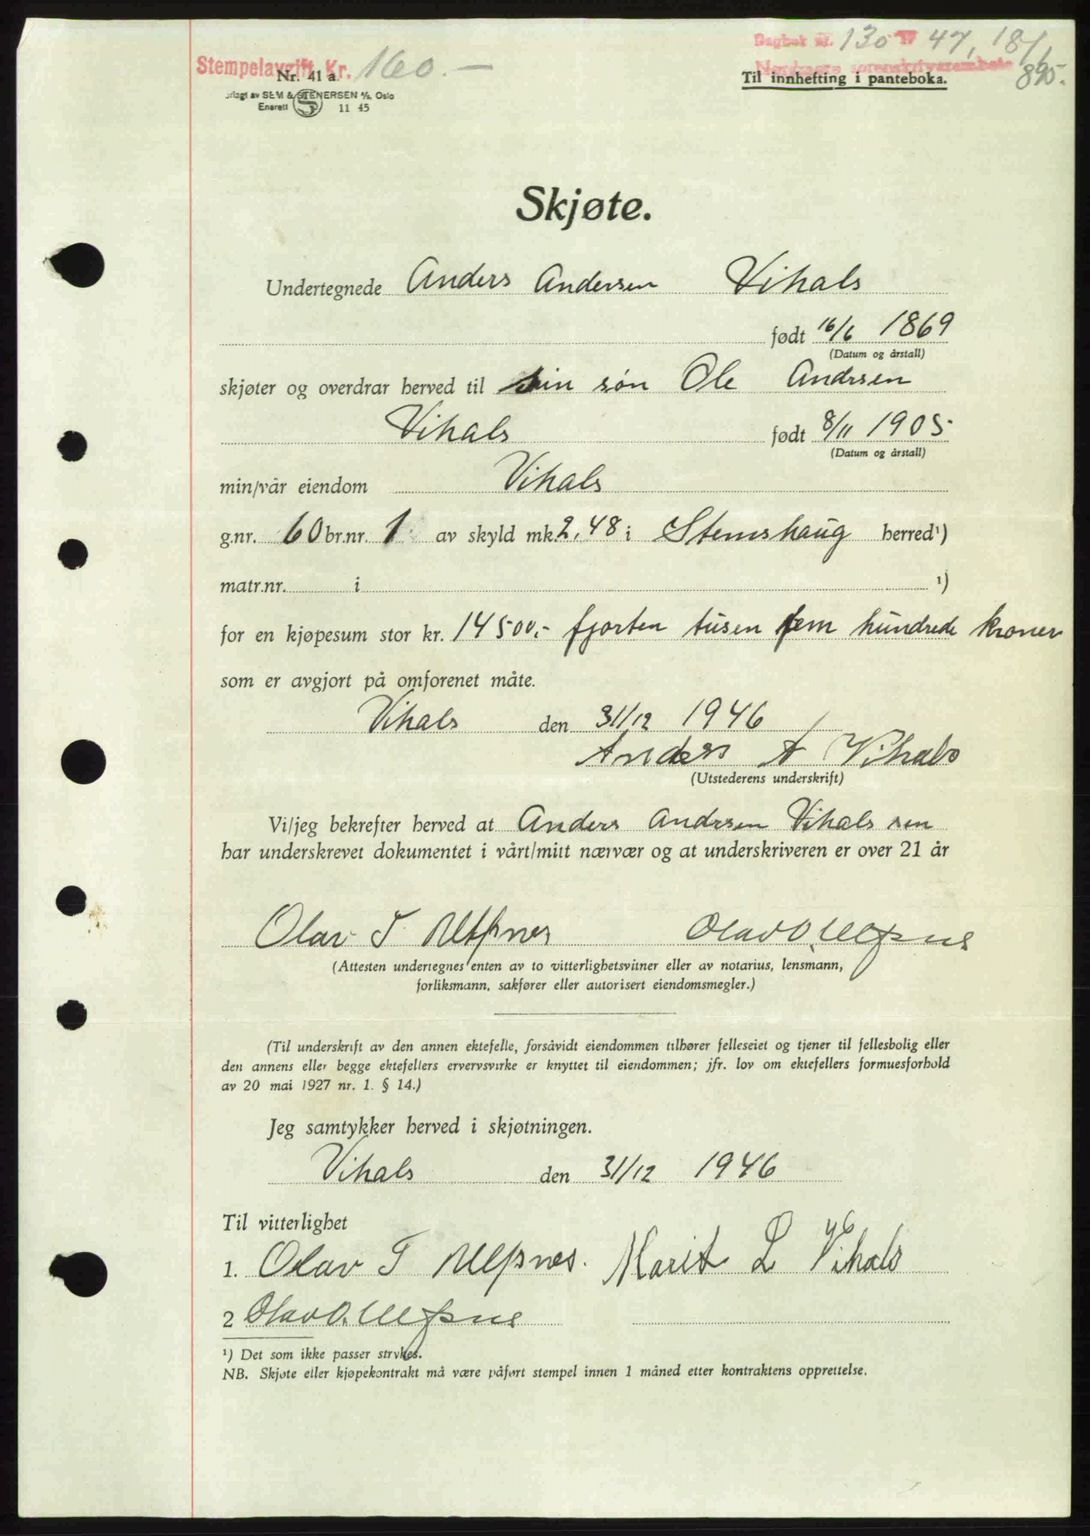 Stempelavgift Kr. 160.-
Dagbok nr. 130 1947, 18/1
Nordmøre sorenskriverembete
890.-
Nr. 41 a.
Til innhefting i panteboka.
SEM & STENERSEN A/S, Oslo
Enerett S 11 45
Skjøte.
Undertegnede Anders Andersen Vihals
født 16/6 1869
(Datum og årstall)
skjøter og overdrar herved til sin søn Ole Andrsen
Vihals født 8/11 1905
(Datum og årstall)
min/vår eiendom Vihals
g.nr. 60 br.nr. 1 av skyld mk. 2,48 i Stemshaug herred¹)
matr.nr. i ¹)
for en kjøpesum stor kr. 14500,- fjorten tusen fem hundrede kroner
som er avgjort på omforenet måte.
Vihals den 31/12 1946
Anders A Vihals
(Utstederens underskrift)
Vi/jeg bekrefter herved at Anders Andrsen Vihals sen
har underskrevet dokumentet i vårt/mitt nærvær og at underskriveren er over 21 år
Olav T Ulfsnes Olav O. Ulfsnes
(Attesten undertegnes enten av to vitterlighetsvitner eller av notarius, lensmann,
forliksmann, sakfører eller autorisert eiendomsmegler.)
(Til underskrift av den annen ektefelle, forsåvidt eiendommen tilhører felleseiet og tjener til fellesbolig eller
den annens eller begge ektefellers ervervsvirke er knyttet til eiendommen; jfr. lov om ektefellers formuesforhold
av 20 mai 1927 nr. 1. § 14.)
Jeg samtykker herved i skjøtningen.
Vihals den 31/12 1946
Til vitterlighet
1. Olav T Ulfsnes. Marit L Vihals
2 Olav O. Ulfsnes
¹) Det som ikke passer strykes.
NB. Skjøte eller kjøpekontrakt må være påført stempel innen 1 måned etter kontraktens opprettelse.